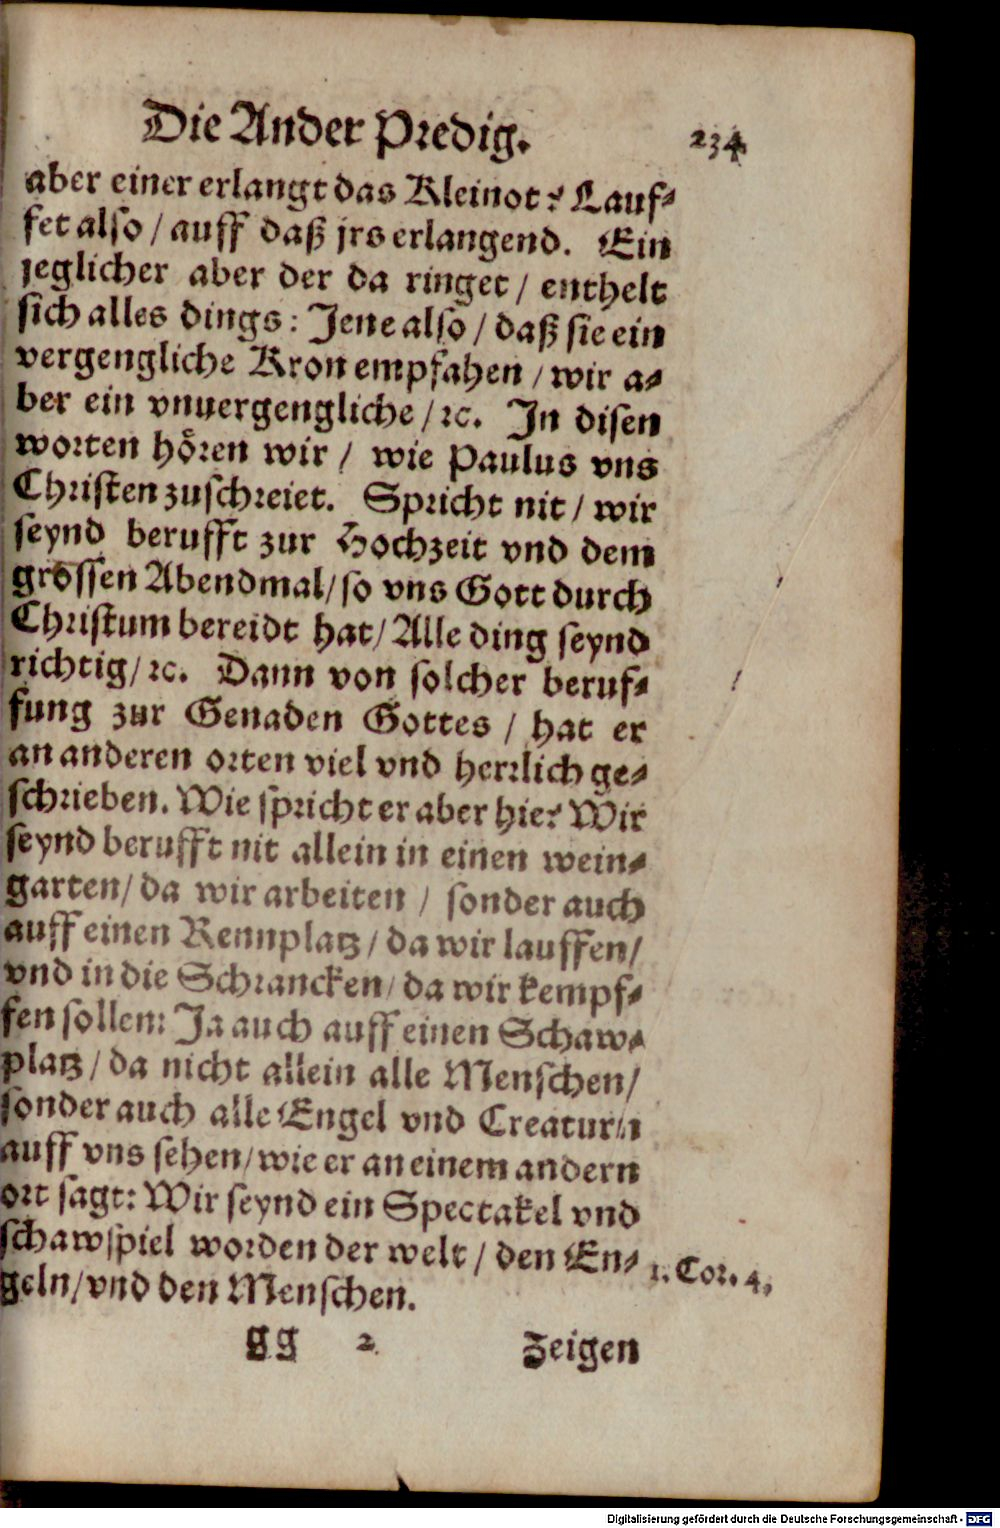 Die Ander Predig. 234
aber einer erlangt das Kleinot? Lauf-
fet also / auff daß jrs erlangend. Ein
jeglicher aber der da ringet / enthelt
sich alles dings: Jene also / daß sie ein
vergengliche Kron empfahen / wir a-
ber ein vnuergengliche / ꝛc. In disen
worten hoͤren wir / wie Paulus vns
Christen zuschreiet. Spricht nit / wir
seynd berufft zur Hochzeit vnd dem
grossen Abendmal / so vns Gott durch
Christum bereidt hat / Alle ding seynd
richtig / ꝛc. Dann von solcher beruf-
fung zur Genaden Gottes / hat er
an anderen orten viel vnd herrlich ge-
schrieben. Wie spricht er aber hie? Wir
seynd berufft nit allein in einen wein-
garten / da wir arbeiten / sonder auch
auff einen Rennplatz / da wir lauffen /
vnd in die Schrancken / da wir kempf-
fen sollen: Ja auch auff einen Schaw-
platz / da nicht allein alle Menschen /
sonder auch alle Engel vnd Creaturn
auff vns sehen / wie er an einem andern
ort sagt: Wir seynd ein Spectakel vnd
schawspiel worden der welt / den En-
geln / vnd den Menschen.
1. Cor. 4.
gg 2 Zeigen
Digitalisierung gefördert durch die Deutsche Forschungsgemeinschaft - DFG